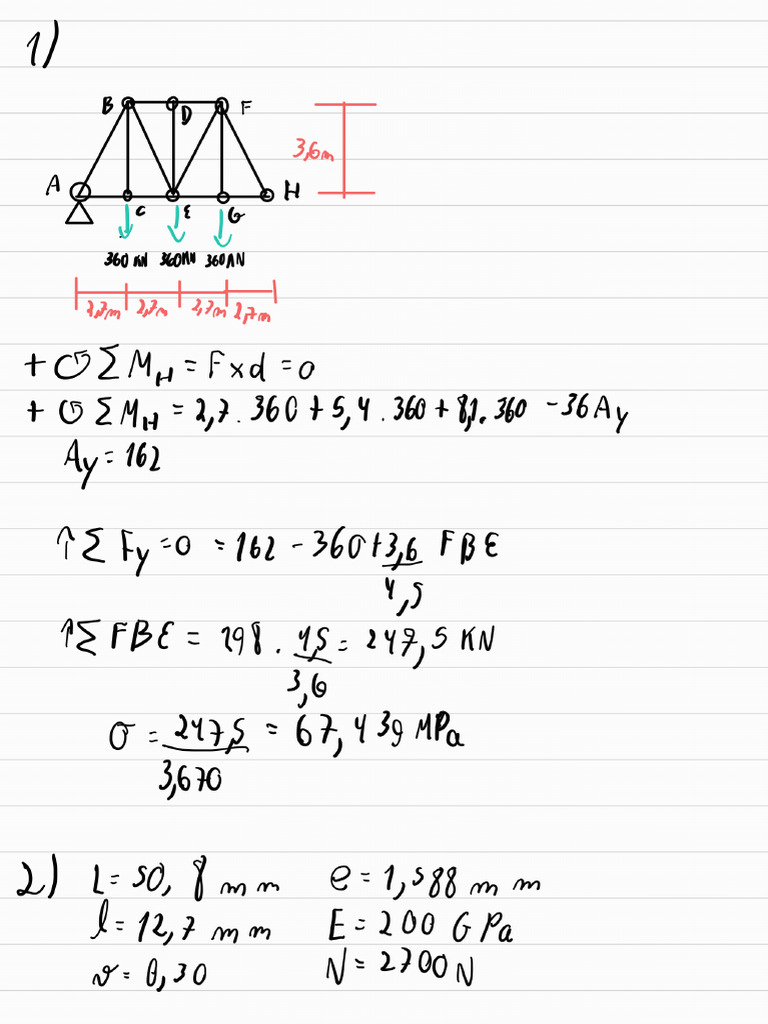 1)
B D F
3,6m
A H
C E G
360 KN 360KN 360KN
2,7m 2,7m 2,7m 2,7m
+ ↺ Σ M_H = F x d = 0
+ ↺ Σ M_H = 2,7 . 360 + 5,4 . 360 + 8,1 . 360 - 36 Ay
Ay = 162
↑ Σ Fy = 0 = 162 - 360 + 3,6/4,5 FBE
↑ Σ FBE = 198 . 4,5/3,6 = 247,5 KN
σ = 247,5/3,670 = 67,439 MPa
2) L = 50,8 mm e = 1,588 mm
l = 12,7 mm E = 200 GPa
v = 0,30 N = 2700 N